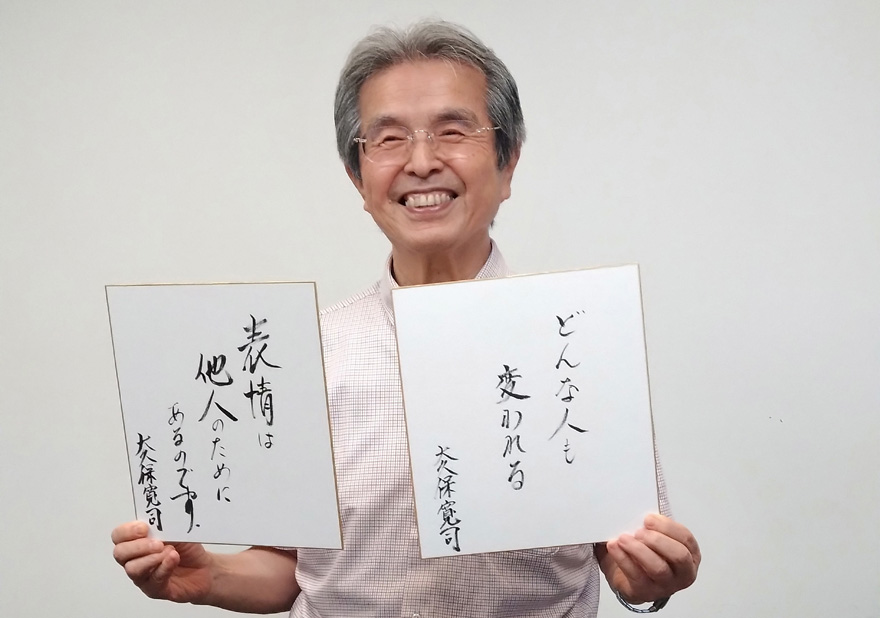 表情は
他人のために
あるのです。
大久保寛司
どんな人も
変われる
大久保寛司